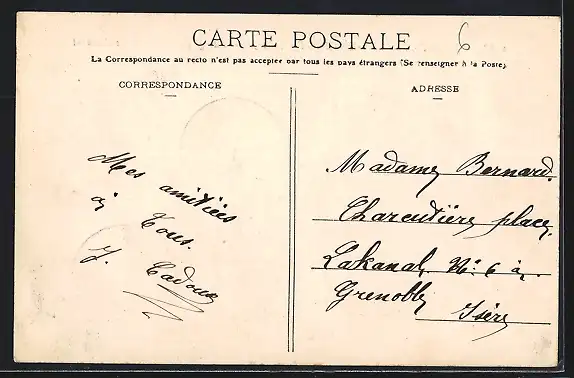 6
CARTE POSTALE
La Correspondance au recto n'est pas acceptée par tous les pays étrangers (Se renseigner à la Poste)
CORRESPONDANCE
Mes amitiées
à
Tous.
J. Cadoux
ADRESSE
Madame Bernard.
Charcutière place
Lakanal, No. 6 à
Grenoble
Isère